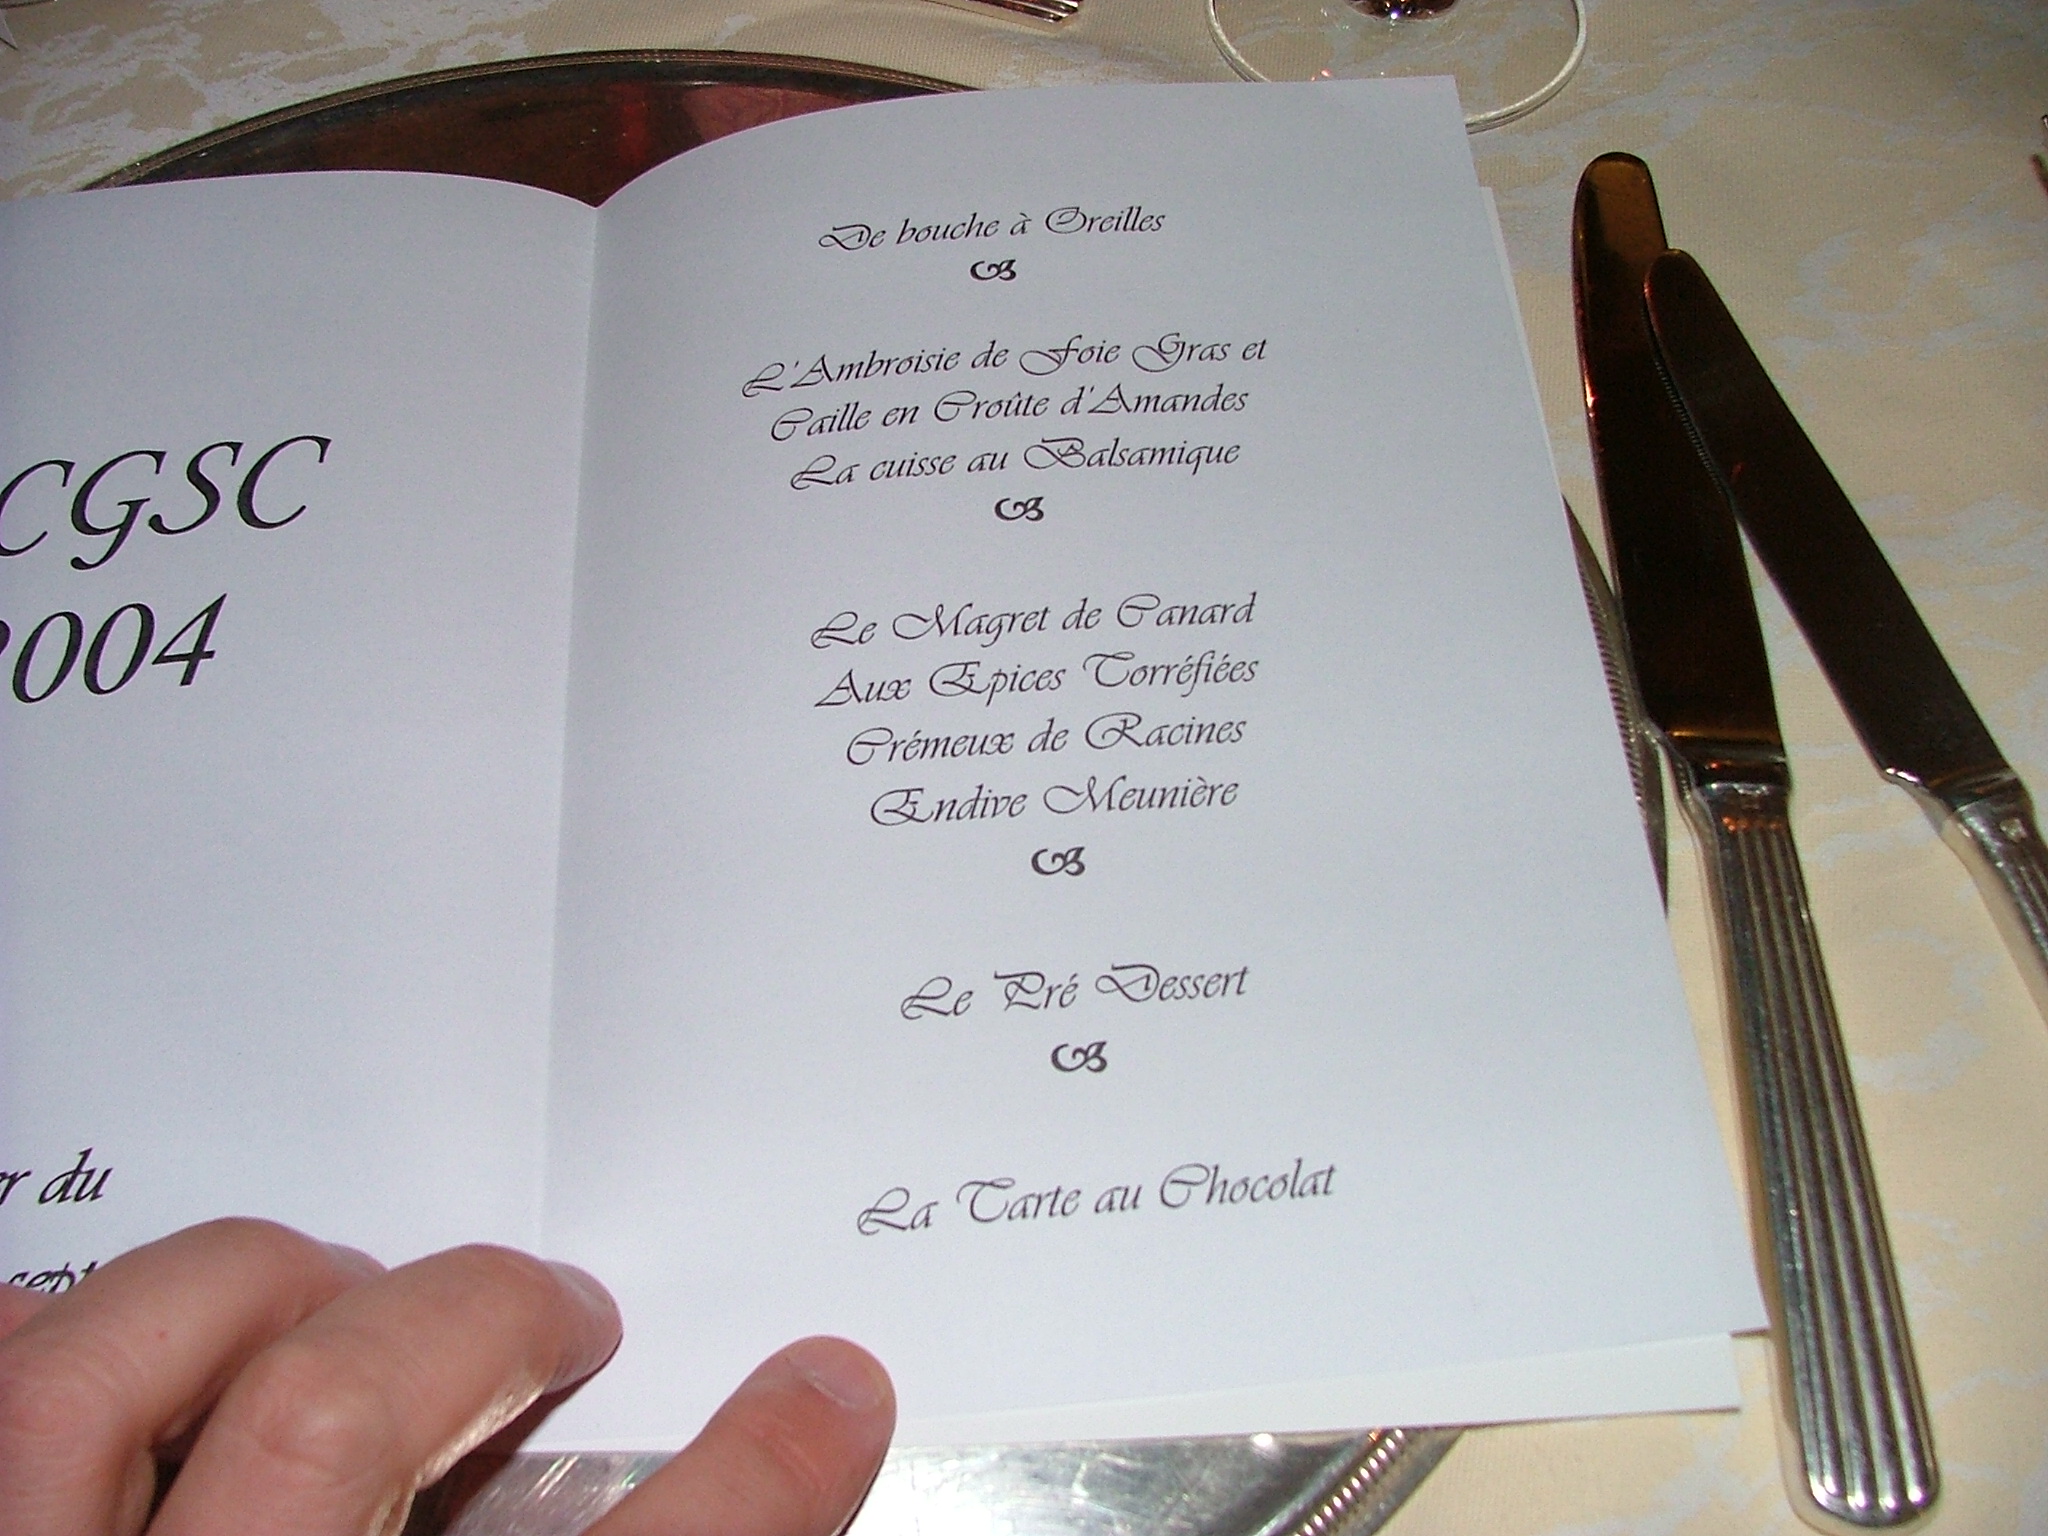 CGSC
2004
er du
sept
De bouche à Oreilles
L'Ambroisie de Foie Gras et
Caille en Croûte d'Amandes
La cuisse au Balsamique
Le Magret de Canard
Aux Epices Torréfiées
Crémeux de Racines
Endive Meunière
Le Pré Dessert
La Tarte au Chocolat